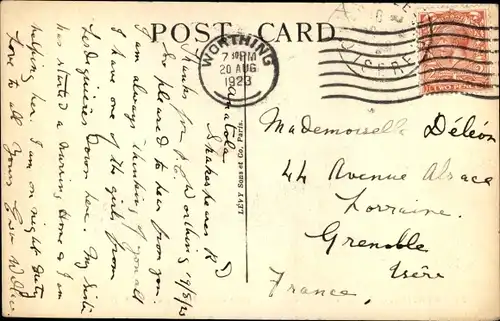 POST CARD
WORTHING
7 30 PM
20 AUG
1923
TWO PENCE
LÉVY SONS et Co., Paris.
Anatola
Shakespeare Rd
Worthing 19/8/23
Thanks for P.C.
So pleased to hear from you
I am always thinking of you all
I have one of the girls from
Lesdiguieres down here. My Sister
has started a Nursing Home & I am
helping her. I am on night duty.
Love to all Yours
Mademoiselle Déléon
44 Avenue Alsace
Lorraine.
Grenoble
Isère
France.